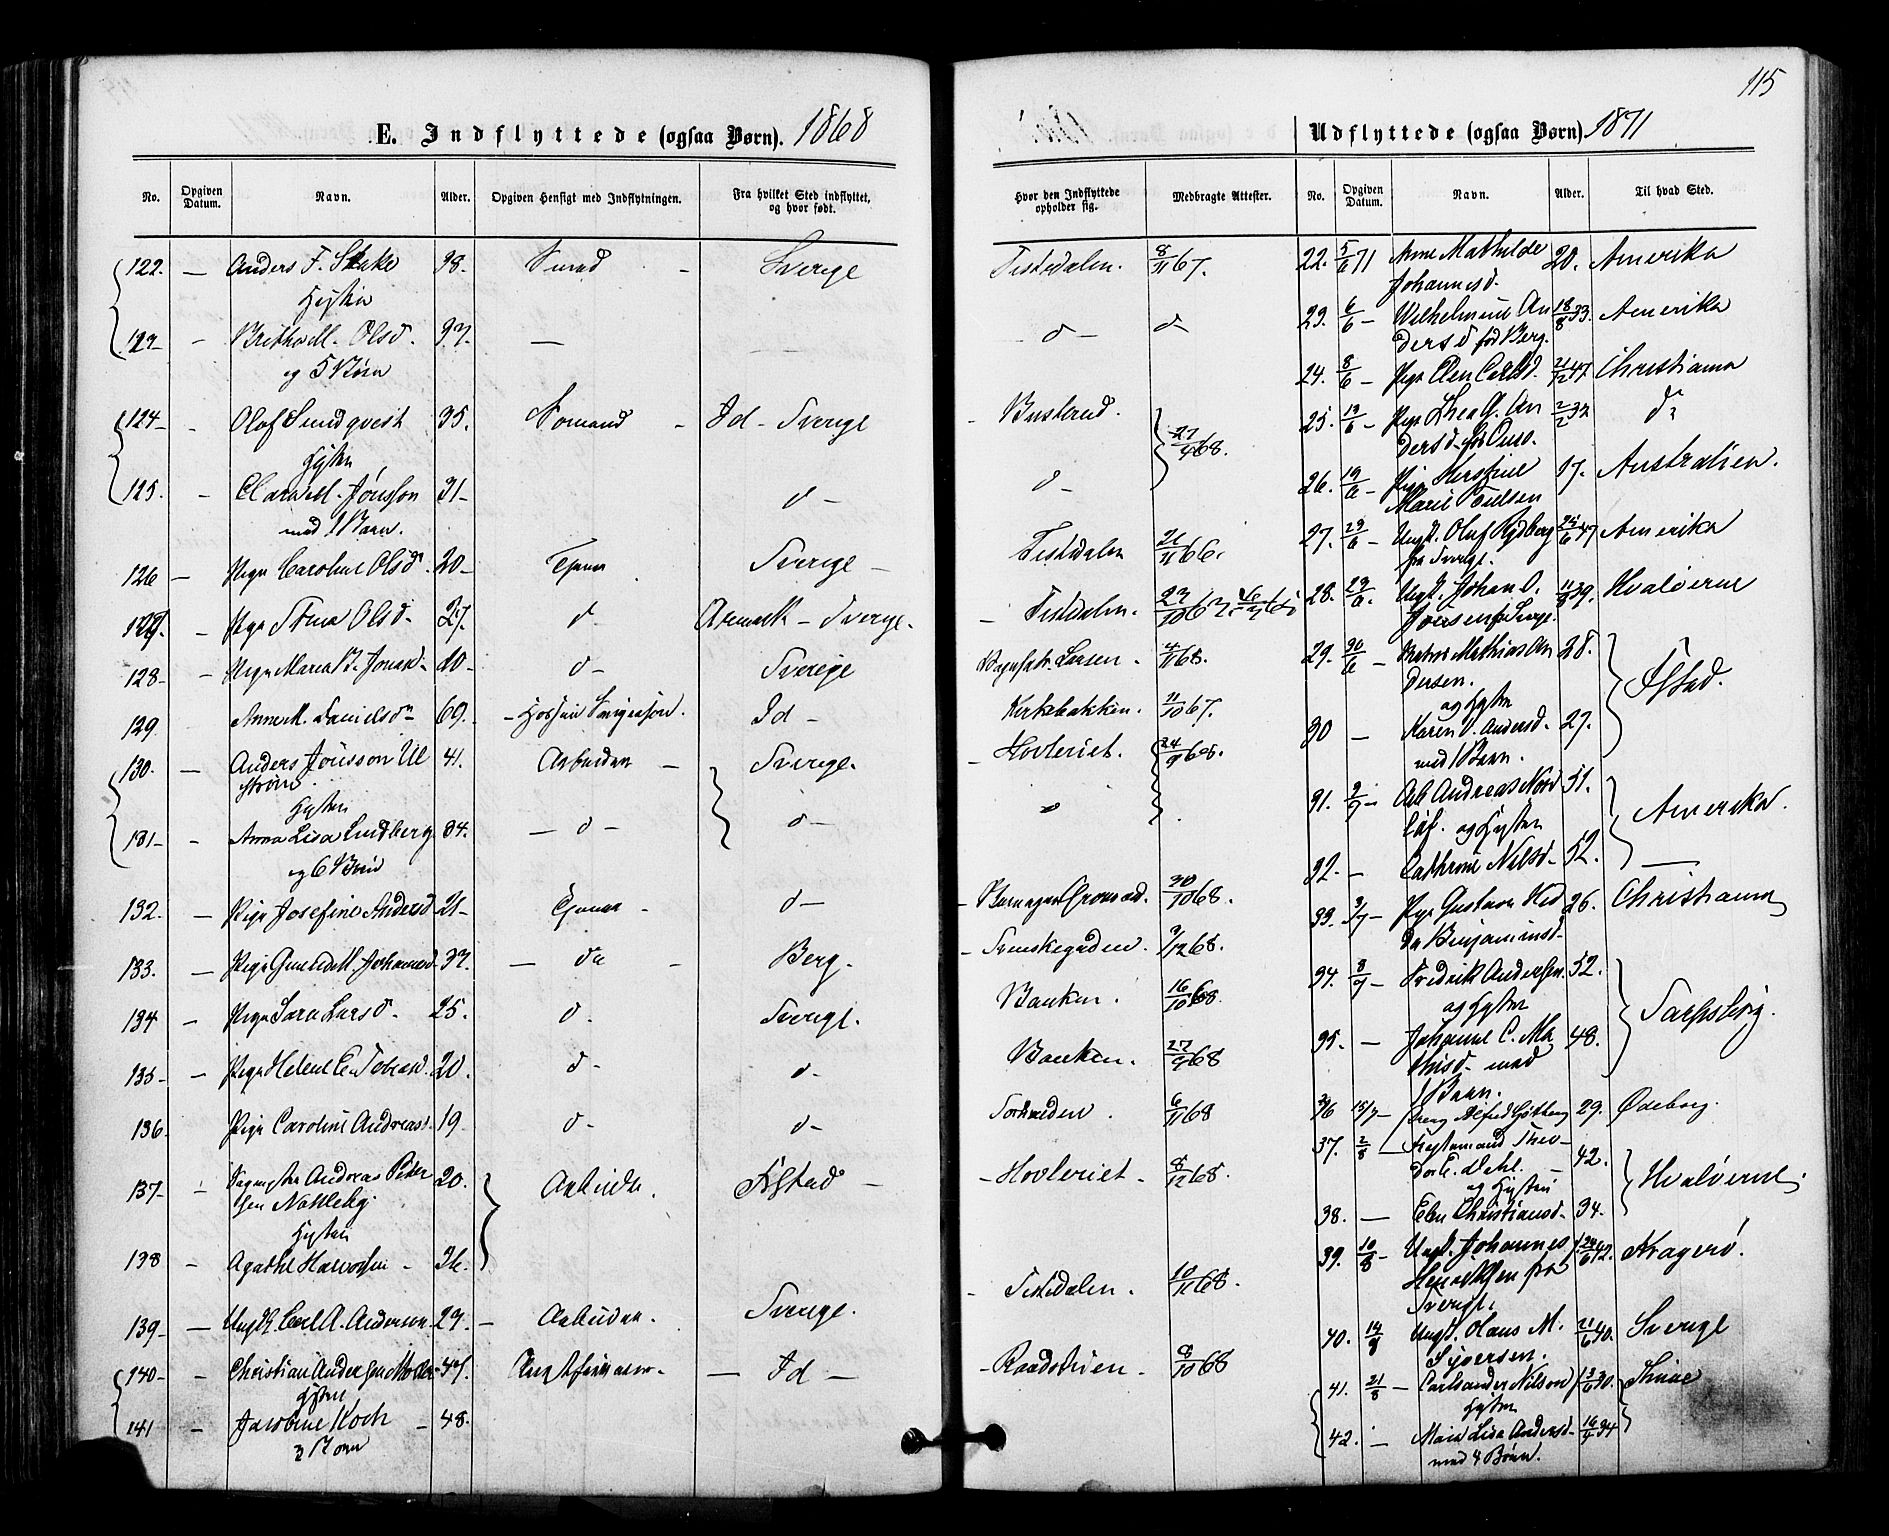 115
E. Indflyttede (ogsaa Børn). 1868
Udflyttede (ogsaa Børn). 1871
No. Opgiven Datum. Navn. Alder. Opgiven Hensigt med Indflytningen. Fra hvilket Sted indflyttet, og hvor født. Hvor den Indflyttede opholder sig. Medbragte Attester.
122. — Anders F. Stake 38. Smed - Sverige Tistedalen. 8/11 67.
Hustru
123 - Britha M. Olsd. 37. — d- d-
og 5 Børn
124 - Olof Sundqvist 35. Sømand - Id - Sverige Busterud. 27/4 68.
Hustru
125. - Clara M. Jonsson 31- d- d-
med 1 Barn.
126 - Pige Caroline Olsd. 20- Tjene Sverige - Tistedalen 21/11 66.
127. - Pige Stina Olsd. 27. d- Aremark - Sverge. Tistedalen.
128 - Pige Maria B. Jonasd. 40- d- Sverige Larsen. 4/11 68.
129 Anne M. Danielsdr 69. Id - Kirkebakken. 11/10 67.
130. — Anders Jonsson Ul 41. Arbeider - Sverige. Hovleriet. 24/9 68.
strøm
Hustru
131 - Anna Lisa Lindberg 34. — d- d-
og 6 Børn
132. - Pige Josefine Andersd 21- Tjene - d- 30/10 68.
133. - Pige Gunhild M. Johannesd. 37. — do - Berg. Svenskegaden. 3/12 68.
134 - Pige Sara Larsd. 25. d- Sverige. Banken. 16/10 68.
135 - Pige Helene E. Tobiasd. 20. d- d- Banken. 27/9 68
136 - Pige Caroline Andreasd. 19. d- d- 6/11 68
137 - Andreas Peter 20. Arbeide. Ifstad - Hovleriet. 8/12 68.
sen Nakleby
Hustru
138 - Agathe Halvorsen - 36.
139 - Ungk. Carl A. Anderson 29. Arbeider. Sverige. Tistedalen. 10/11 68.
140 - Christian Andersen 47. — Id — 8/10 68
Hustru
141 - Jacobine Koch - 48.
3 Børn
No. Opgiven Datum. Navn. Alder. Til hvad Sted.
22. 5/6 71 Anne Mathilde 20. Amerika
Johannesd.
23. 6/6 - Wilhelmine An 18/8 33. Amerika
dersd født Berg.
24. 8/6 - Pige Elen Carlsd. 21/12 47. Christiania
25. 13/6 - Pige Thea G. An 2/2 32 do
dersd.
26. 19/6 - Pige Kirstine 17. Australien.
Marie
27. 23/6 - Ungk. Olaf Rydberg 25/6 47 Amerika
fra Sverige.
28. 29/6. Ungk. Johan O. 11/8 39. Hvaløerne
29. 30/6 - Mathias An 28. Ifstad.
dersen.
og Hustru
30 - Karen O. Andersd. 27.
med 1 Barn.
31. 3/7 - Arb Andreas Nord 51. Amerika.
løf. og Hustru
32. - Cathrine Nilsd. 52. —
33. 3/7 - Pige Gustava Hed 26. Christiania
da Benjaminsd.
34. 8/7 - Fredrik Andersen 52. Sarpsborg.
og Hustru
35. - Johanne C. Ma 48.
thisd. med
1 Barn.
36 15/7 - Alfred 29. Ødeborg.
37. 2/8 Theo- 42. Hvaløerne.
dor E. Dahl. -
og Hustru
38. — Elen Christiansd. 34.
39. 10/8 - Ungk. Johannes 42. Kragerø.
Henriksen fra
Sverige.
40. 14/8 Ungk. Hans M. 21/6 40. Sverige
Syversen.
41. 21/8 - Carl Nilson 13/6 30.
Hustru
42. - Maia Lisa Andersd. 16/4 34
med 4 Børn.